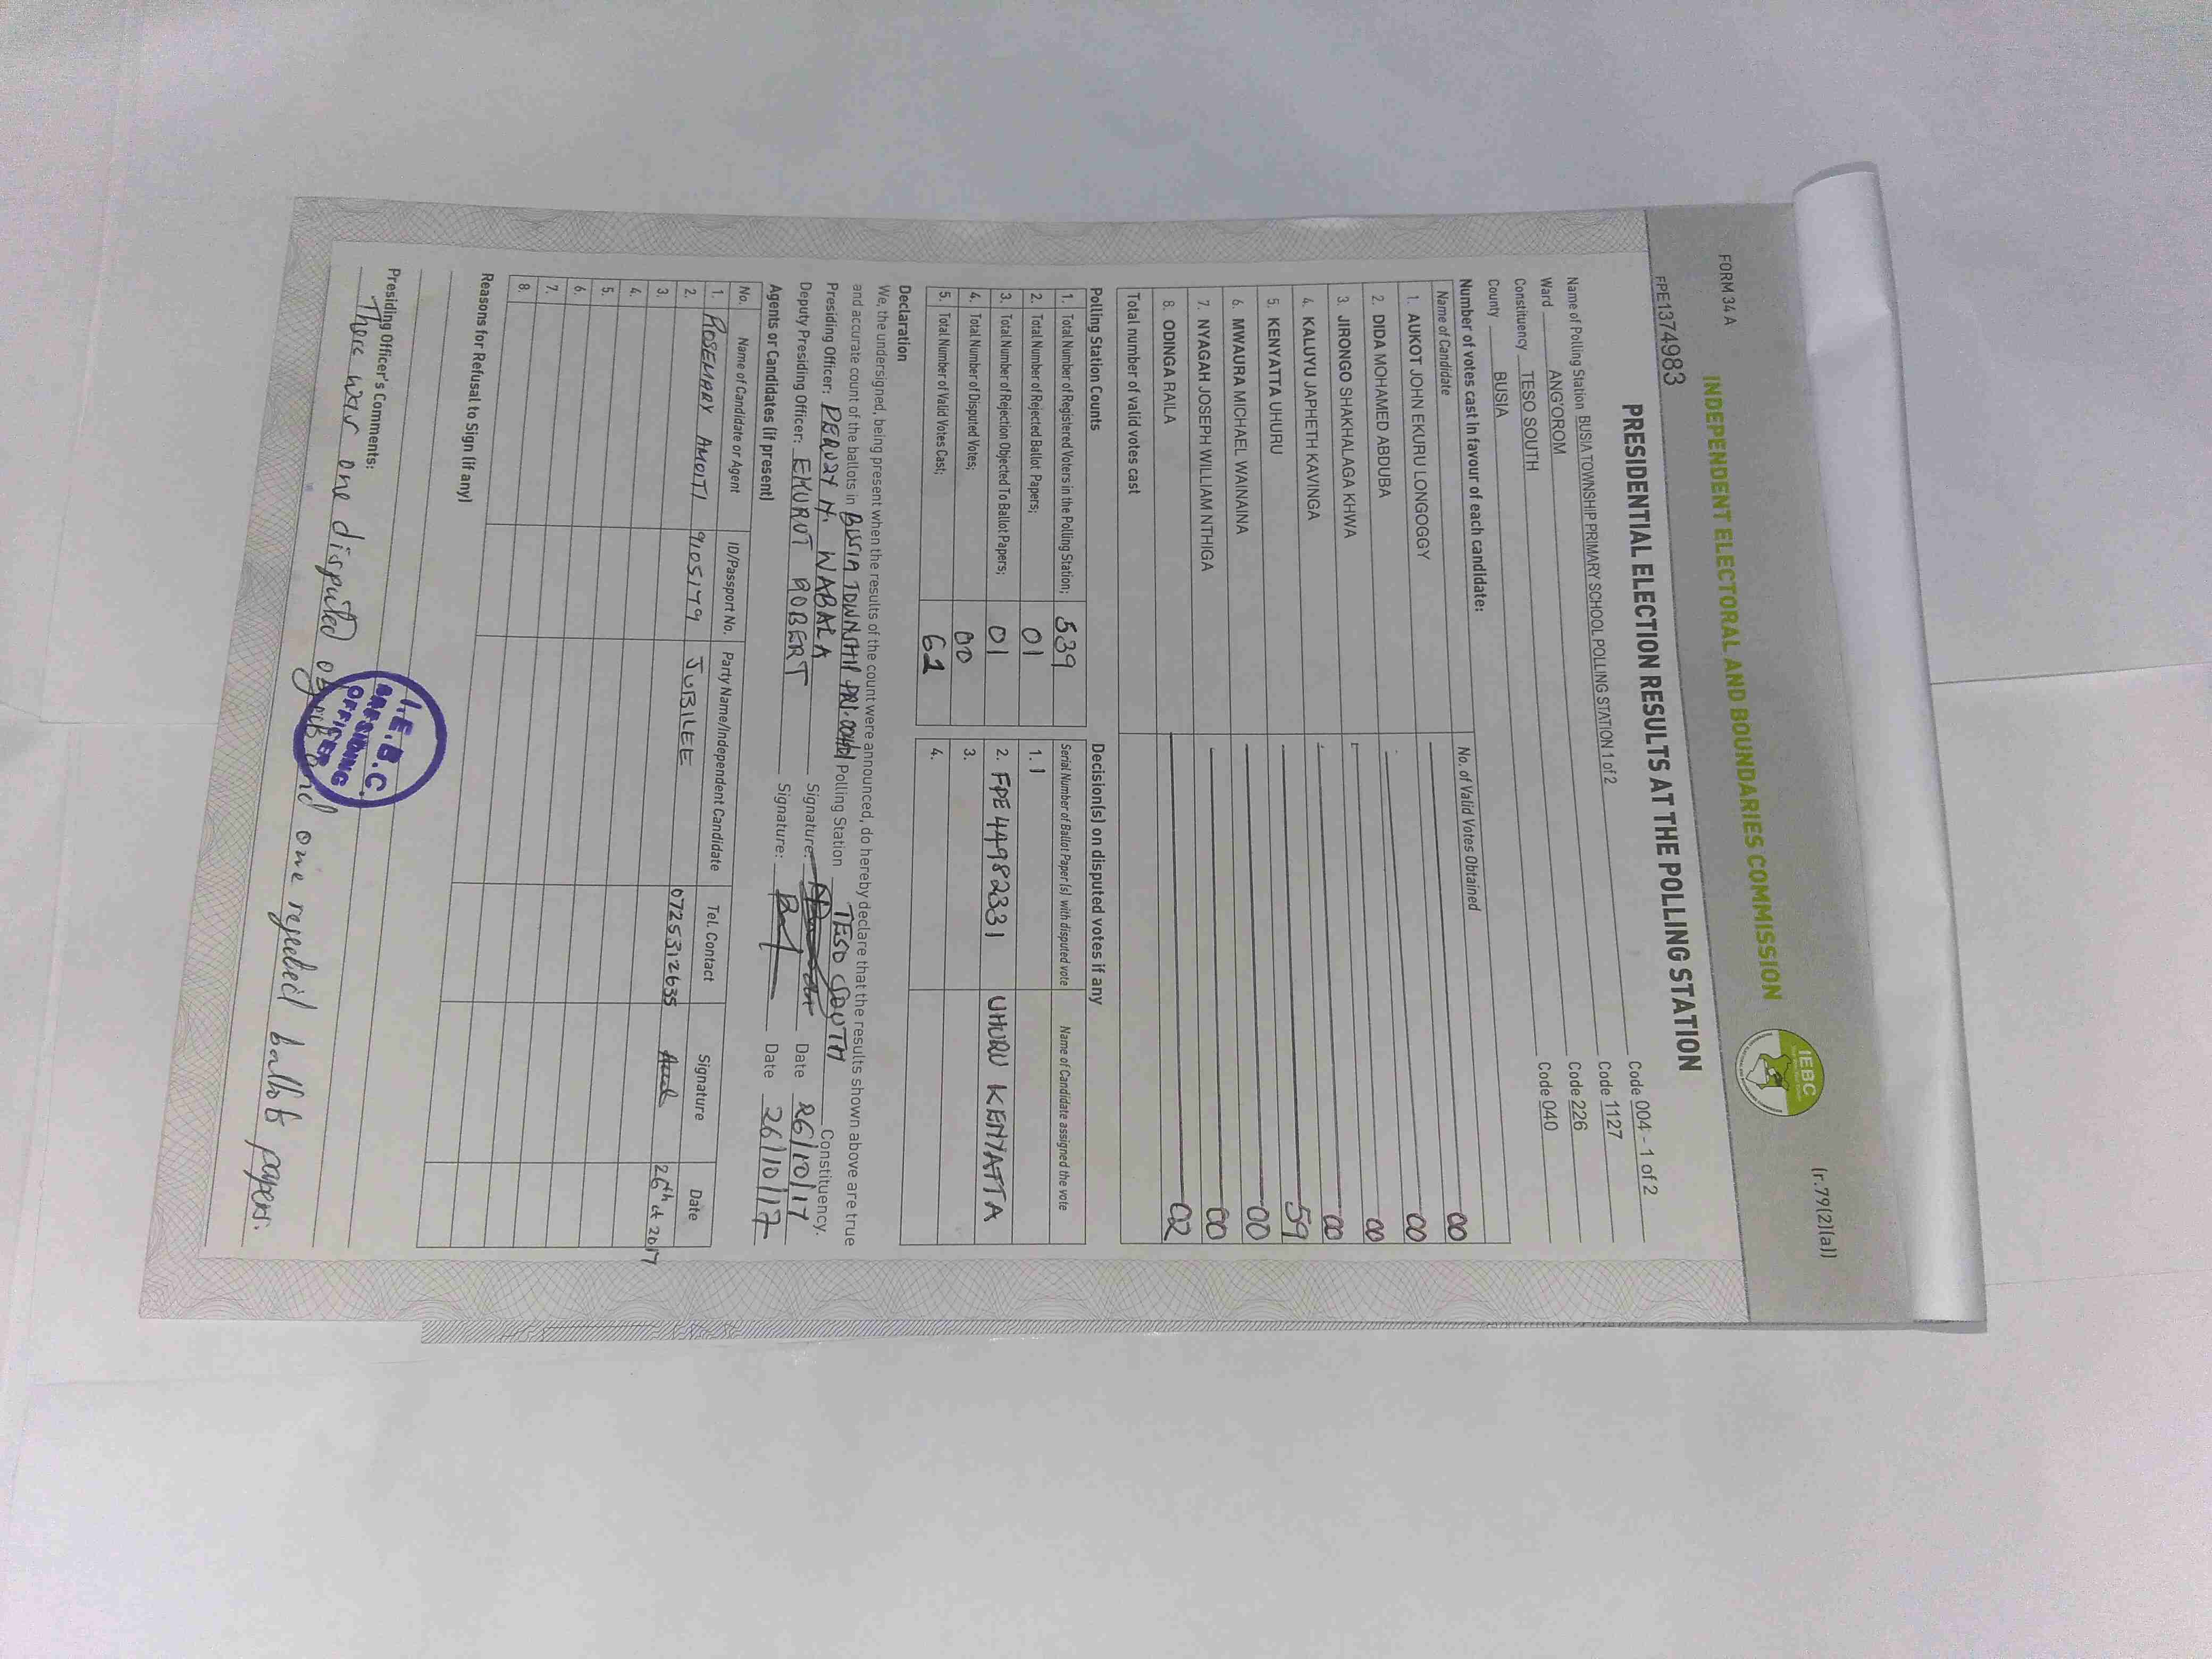 FORM 34 A
(r.79(2)(a))
INDEPENDENT ELECTORAL AND BOUNDARIES COMMISSION
IEBC
FPE1374983
PRESIDENTIAL ELECTION RESULTS AT THE POLLING STATION
Name of Polling Station BUSIA TOWNSHIP PRIMARY SCHOOL POLLING STATION 1 of 2 Code 004 - 1 of 2
Ward ANG'OROM Code 1127
Constituency TESO SOUTH Code 226
County BUSIA Code 040
Number of votes cast in favour of each candidate:
Name of Candidate No. of Valid Votes Obtained
1. AUKOT JOHN EKURU LONGOGGY 00
2. DIDA MOHAMED ABDUBA 00
3. JIRONGO SHAKHALAGA KHWA 00
4. KALUYU JAPHETH KAVINGA 00
5. KENYATTA UHURU 59
6. MWAURA MICHAEL WAINAINA 00
7. NYAGAH JOSEPH WILLIAM NTHIGA 00
8. ODINGA RAILA 02
Total number of valid votes cast
Polling Station Counts
1. Total Number of Registered Voters in the Polling Station; 539
2. Total Number of Rejected Ballot Papers; 01
3. Total Number of Rejection Objected To Ballot Papers; 01
4. Total Number of Disputed Votes; 00
5. Total Number of Valid Votes Cast; 61
Decision(s) on disputed votes if any
Serial Number of Ballot Paper (s) with disputed vote Name of Candidate assigned the vote
1. 1
2. FPE 44982331 UHURU KENYATTA
3.
4.
Declaration
We, the undersigned, being present when the results of the count were announced, do hereby declare that the results shown above are true
and accurate count of the ballots in BUSIA TOWNSHIP PRI. Polling Station TESO SOUTH Constituency.
Presiding Officer: N. WABALA Signature: Date 26/10/17
Deputy Presiding Officer: EKURUT ROBERT Signature: Date 26/10/17
Agents or Candidates (if present)
No. Name of Candidate or Agent ID/Passport No. Party Name/Independent Candidate Tel. Contact Signature Date
1. ROSEMARY AMOTI 9105179 JUBILEE 0725312635 26th 2017
2.
3.
4.
5.
6.
7.
8.
Reasons for Refusal to Sign (if any)
Presiding Officer's Comments:
There was one disputed and one rejected ballot papers.
I.E.B.C.
PRESIDING
OFFICER